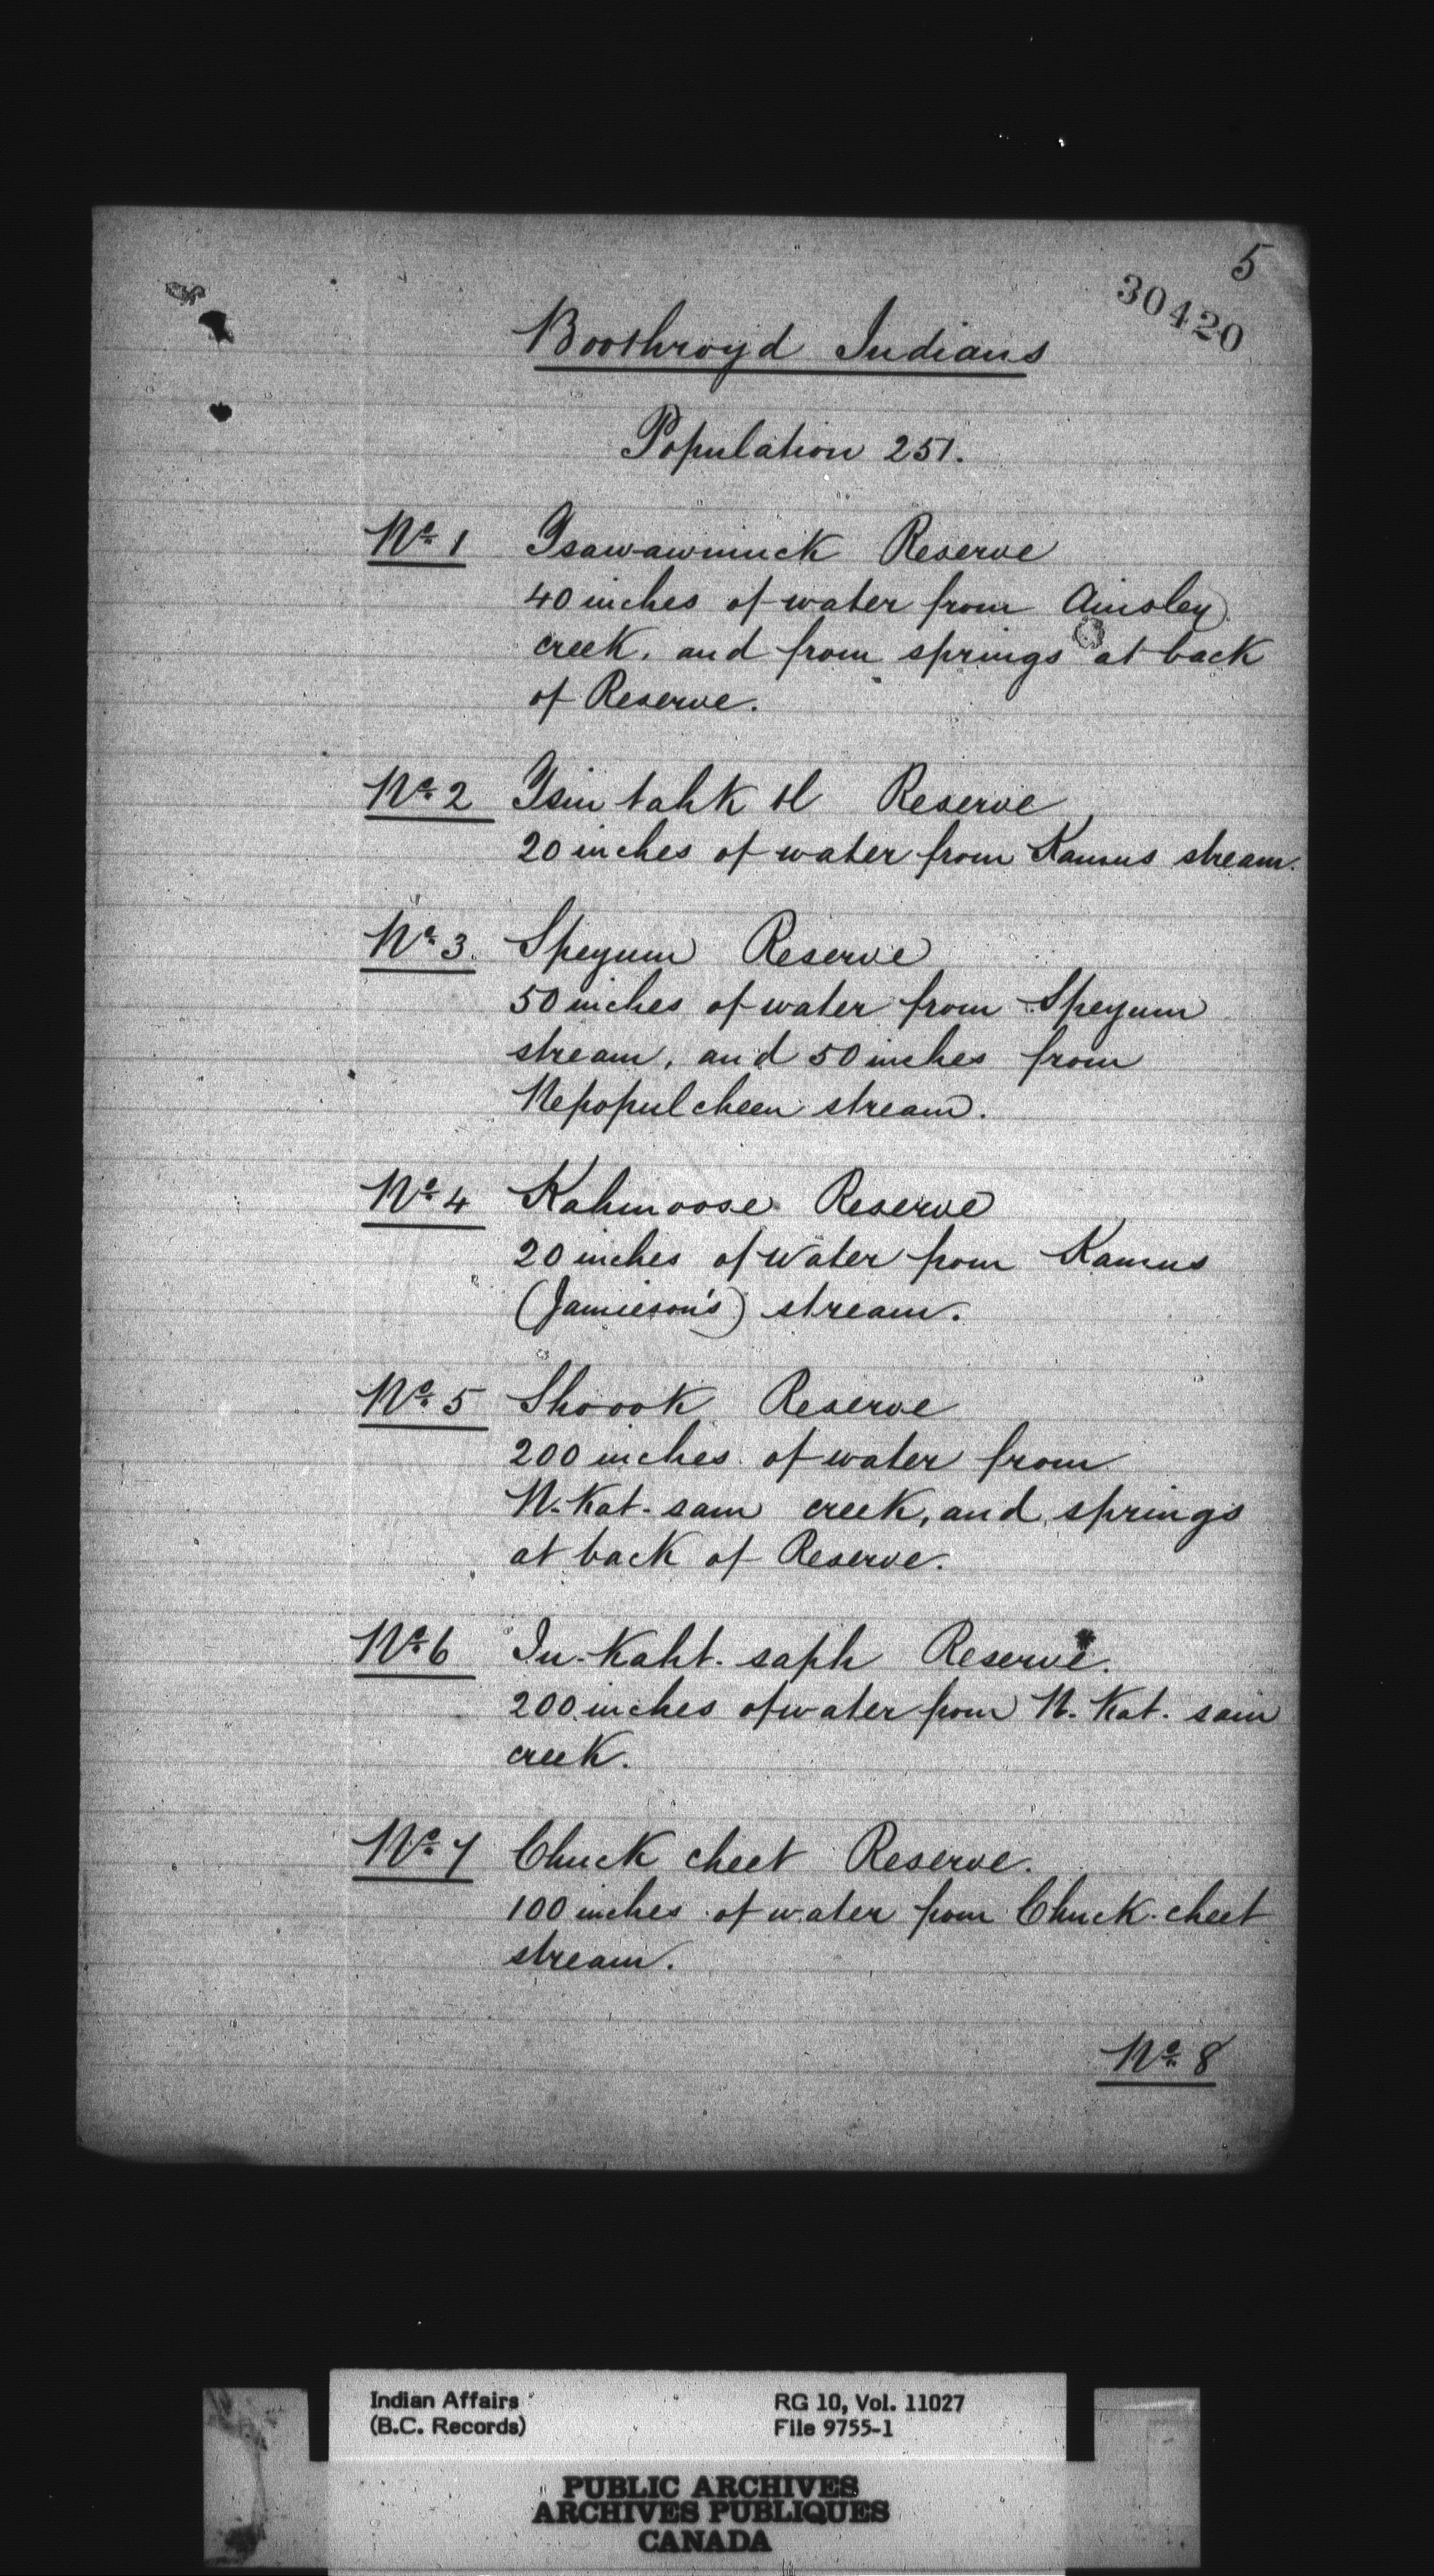 5
30420
Boothroyd Indians
Population 251.
No. 1 Tsawawmuck Reserve
40 inches of water from Ainsley
creek, and from springs at back
of Reserve.
No. 2 Tsin tahk tl Reserve
20 inches of water from Kamus stream.
No. 3. Speyum Reserve
50 inches of water from Speyum
stream, and 50 inches from
Nepopulcheen stream.
No. 4 Kahmoose Reserve
20 inches of water from Kamus
(Jamieson's) stream.
No. 5 Shoook Reserve
200 inches of water from
N. Kat. sam creek, and springs
at back of Reserve.
No. 6 In. Kaht. saph Reserve.
200 inches of water from N. Kat. sam
creek.
No. 7 Chuck cheet Reserve.
100 inches of water from Chuck. cheet
stream.
No. 8
Indian Affairs RG 10, Vol. 11027
(B.C. Records) File 9755-1
PUBLIC ARCHIVES
ARCHIVES PUBLIQUES
CANADA